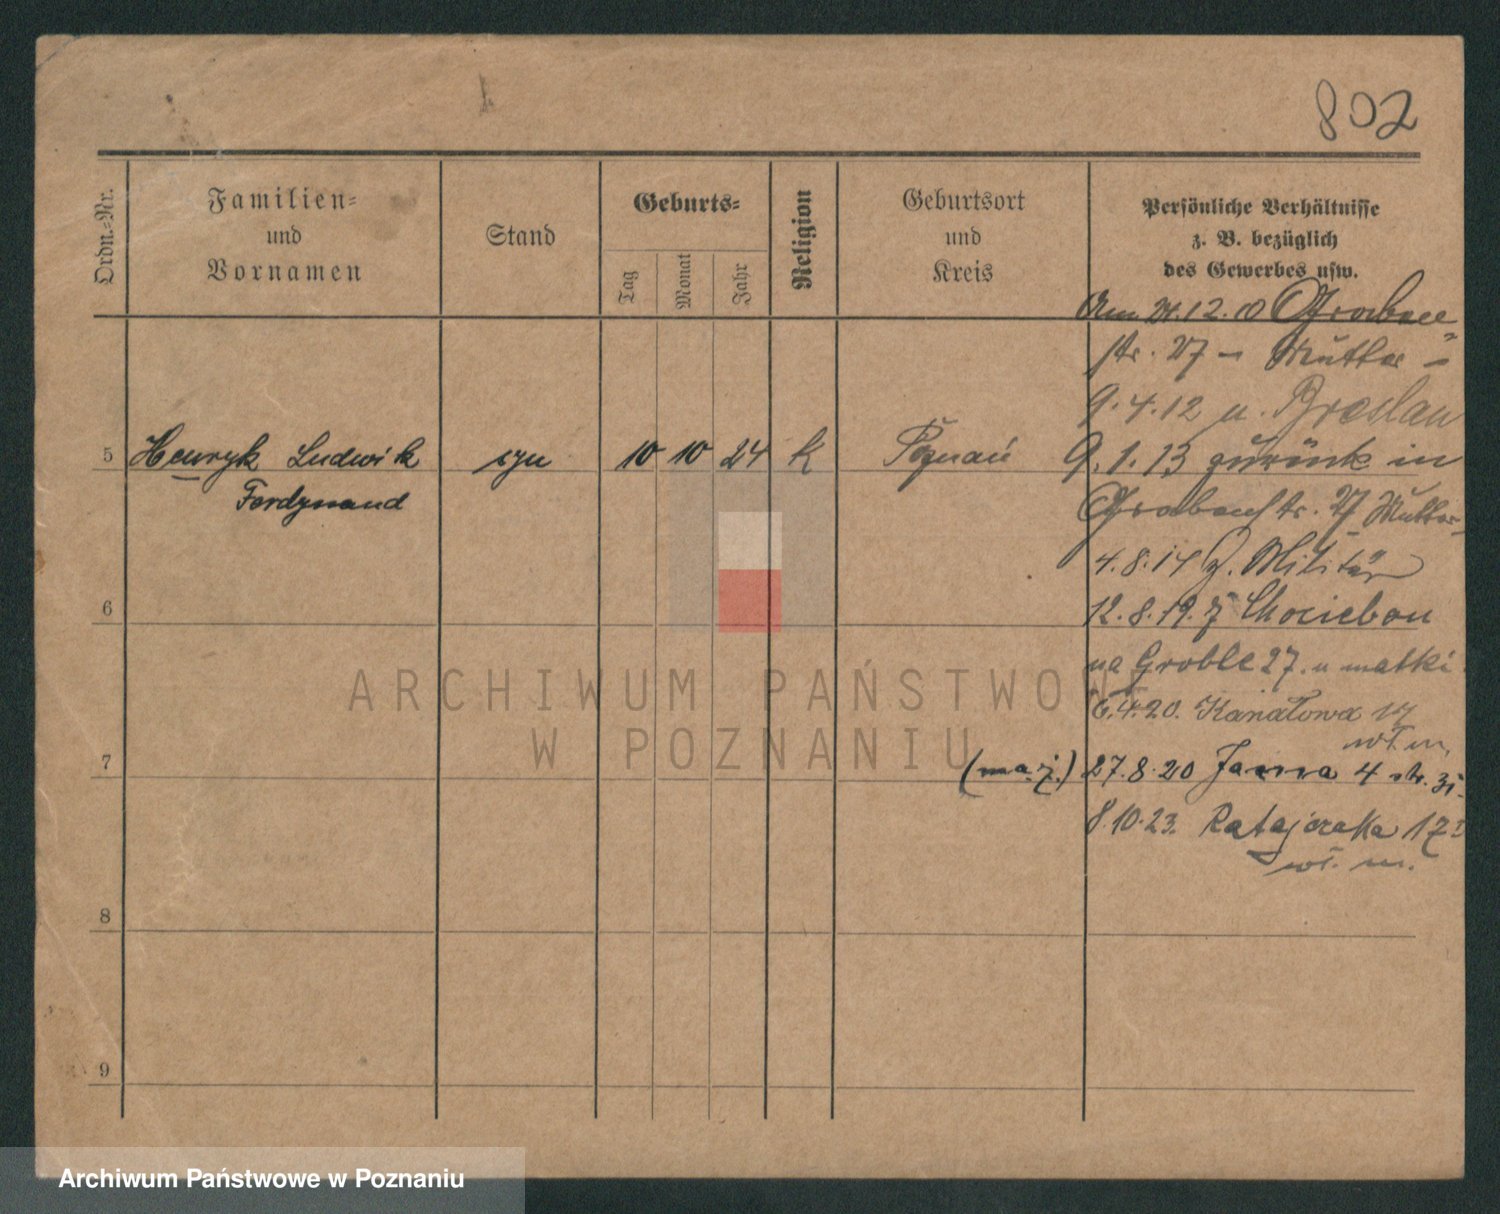 802
Ordn.-Nr.
Familien-
und
Vornamen
Stand
Geburts-
Tag
Monat
Jahr
Religion
Geburtsort
und
Kreis
Persönliche Verhältnisse
z. B. bezüglich
des Gewerbes usw.
Am 24.12.10 Graben-
str. 27 - Mutter -
9.4.12 n. Breslau
5 Henryk Ludwik syn 10 10 24 k Poznań
Ferdynand
9.1.13 zurück in
Grabenstr. 27 Mutter
4.8.14 z. Militär
6
12.8.19. z Chociebou
na Groble 27. u matki
6.4.20. Kanałowa 17
wł. m.
7
27.8.20 Jasna 4 str.
8.10.23. Ratajczaka 17
wł. m.
8
9
ARCHIWUM PAŃSTWOWE
W POZNANIU
Archiwum Państwowe w Poznaniu